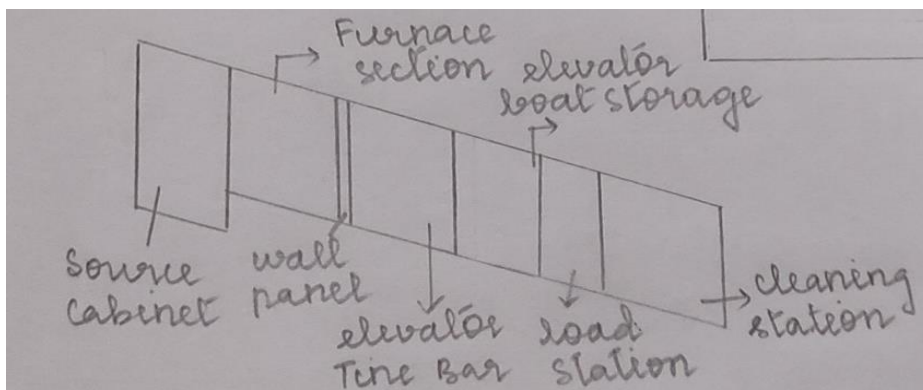 Furnace
section
elevator
boat storage
source
cabinet
wall
panel
elevator
Tine Bar
load
station
cleaning
station